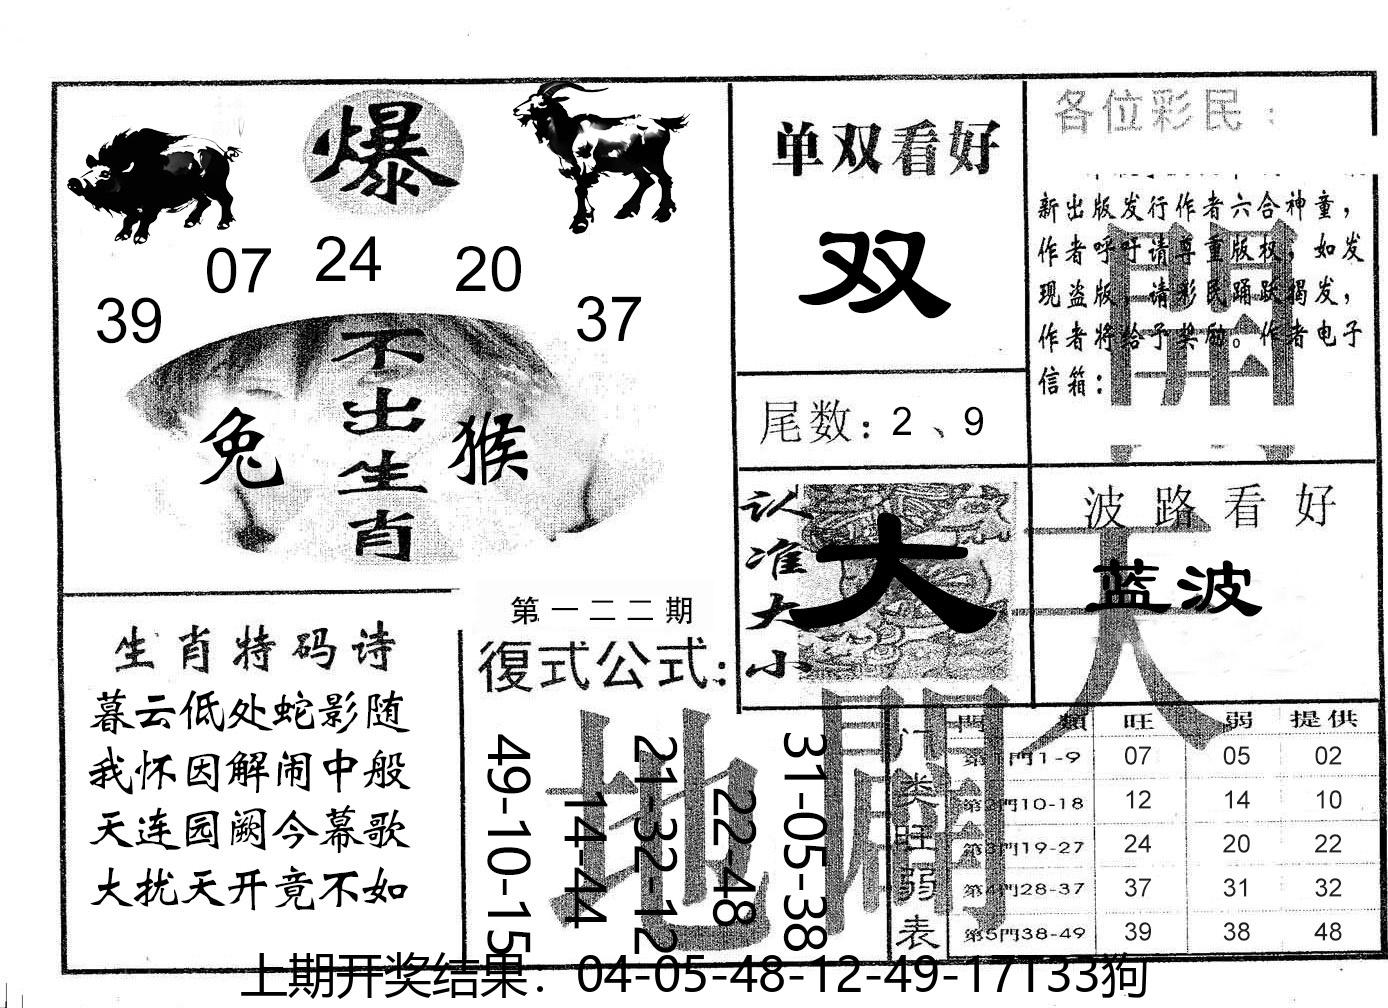 爆
07 24 20
39 37
不出生肖
兔 猴
单双看好
双
尾数：2、9
各位彩民：
新出版发行作者六合神童，
作者呼吁请尊重版权，如发
现盗版，请彩民踊跃揭发，
作者将给予奖励。作者电子
信箱：
認准大小
大
波路看好
蓝波
天
地
開
生肖特码诗
暮云低处蛇影随
我怀因解闹中般
天连园阙今幕歌
大扰天开竟不如
第一二二期
復式公式：
49-10-15
14-44
21-32-12
22-48
31-05-38
门类旺弱表
門 類 旺 弱 提供
第1門1-9 07 05 02
第2門10-18 12 14 10
第3門19-27 24 20 22
第4門28-37 37 31 32
第5門38-49 39 38 48
上期开奖结果：04-05-48-12-49-17T33狗